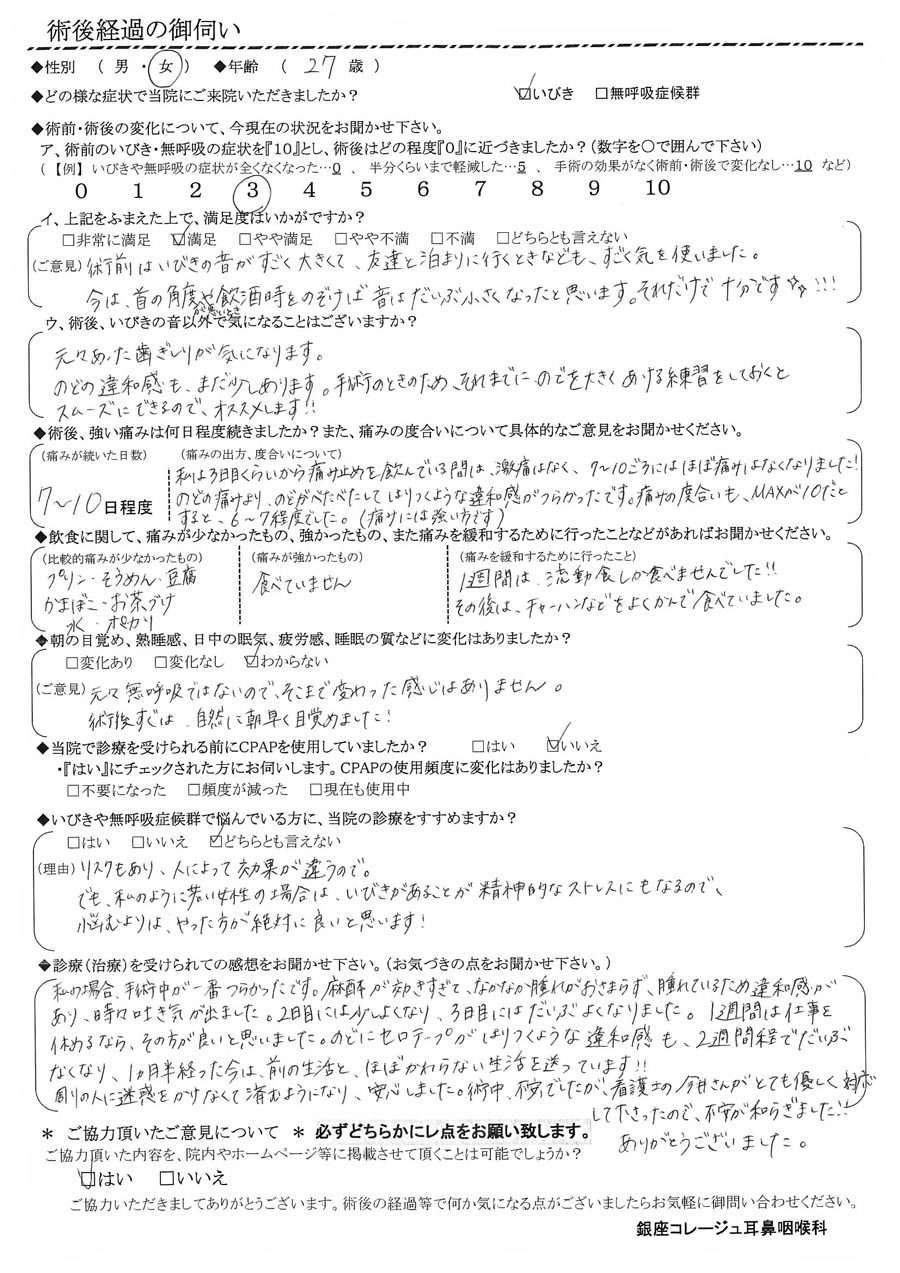 術後経過の御伺い
◆性別 （ 男 ・ 女 ） ◆年齢 （ 27 歳 ）
◆どの様な症状で当院にご来院いただきましたか？ ☑いびき □無呼吸症候群
◆術前・術後の変化について、今現在の状況をお聞かせ下さい。
ア、術前のいびき・無呼吸の症状を『10』とし、術後はどの程度『0』に近づきましたか？（数字を○で囲んで下さい）
（【例】いびきや無呼吸の症状が全くなくなった…0 、 半分くらいまで軽減した…5 、 手術の効果がなく術前・術後で変化なし…10 など）
0 1 2 3 4 5 6 7 8 9 10
イ、上記をふまえた上で、満足度はいかがですか？
□非常に満足 ☑満足 □やや満足 □やや不満 □不満 □どちらとも言えない
（ご意見）術前はいびきの音がすごく大きくて、友達と泊まりに行くときなども、すごく気を使いました。
今は、首の角度や飲酒時をのぞけば音はだいぶ小さくなったと思います。それだけで十分です☆☆!!!
が悪いとき
ウ、術後、いびきの音以外で気になることはございますか？
元々あった歯ぎしりが気になります。
のどの違和感も、まだ少しあります。手術のときのため、それまでにのどを大きくあける練習をしておくと
スムーズにできるので、オススメします!!
◆術後、強い痛みは何日程度続きましたか？また、痛みの度合いについて具体的なご意見をお聞かせください。
（痛みが続いた日数） （痛みの出方、度合いについて）
私は3日目くらいから痛み止めを飲んでいる間は、激痛はなく、7〜10ごろにはほぼ痛みはなくなりました!
7〜10日程度 のどの痛みより、のどがべたべたしてはりつくような違和感がつらかったです。痛みの度合いも、MAXが10だと
すると、6〜7程度でした。（痛みには強い方です）
◆飲食に関して、痛みが少なかったもの、強かったもの、また痛みを緩和するために行ったことなどがあればお聞かせください。
（比較的痛みが少なかったもの） （痛みが強かったもの） （痛みを緩和するために行ったこと）
プリン・そうめん・豆腐 食べていません 1週間は、流動食しか食べませんでした!!
かまぼこ・お茶づけ その後は、チャーハンなどをよくかんで食べていました。
水・ポカリ
◆朝の目覚め、熟睡感、日中の眠気、疲労感、睡眠の質などに変化はありましたか？
□変化あり □変化なし ☑わからない
（ご意見）元々無呼吸ではないので、そこまで変わった感じはありません。
術後すぐは、自然に朝早く目覚めました!
◆当院で診療を受けられる前にCPAPを使用していましたか？ □はい ☑いいえ
・『はい』にチェックされた方にお伺いします。CPAPの使用頻度に変化はありましたか？
□不要になった □頻度が減った □現在も使用中
◆いびきや無呼吸症候群で悩んでいる方に、当院の診療をすすめますか？
□はい □いいえ ☑どちらとも言えない
（理由）リスクもあり、人によって効果が違うので。
でも、私のように若い女性の場合は、いびきがあることが精神的なストレスにもなるので、
悩むよりは、やった方が絶対に良いと思います!
◆診療（治療）を受けられての感想をお聞かせ下さい。（お気づきの点をお聞かせ下さい。）
私の場合、手術中が一番つらかったです。麻酔が効きすぎて、なかなか腫れがおさまらず、腫れているため違和感が
あり、時々吐き気が出ました。2日目には少しよくなり、3日目にはだいぶよくなりました。1週間は仕事を
休めるなら、その方が良いと思いました。のどにセロテープがはりつくような違和感も、2週間程でだいぶ
なくなり、1ヵ月半経った今は、前の生活と、ほぼかわらない生活を送っています!!
周りの人に迷惑をかけなくて済むようになり、安心しました。術中、不安でしたが、看護士の さんがとても優しく対応
して下さったので、不安が和らぎました!!
ありがとうございました。
＊ ご協力頂いたご意見について ＊ 必ずどちらかにレ点をお願い致します。
ご協力頂いた内容を、院内やホームページ等に掲載させて頂くことは可能でしょうか？
☑はい □いいえ
ご協力いただきましてありがとうございます。術後の経過等で何か気になる点がございましたらお気軽に御問い合わせください。
銀座コレージュ耳鼻咽喉科